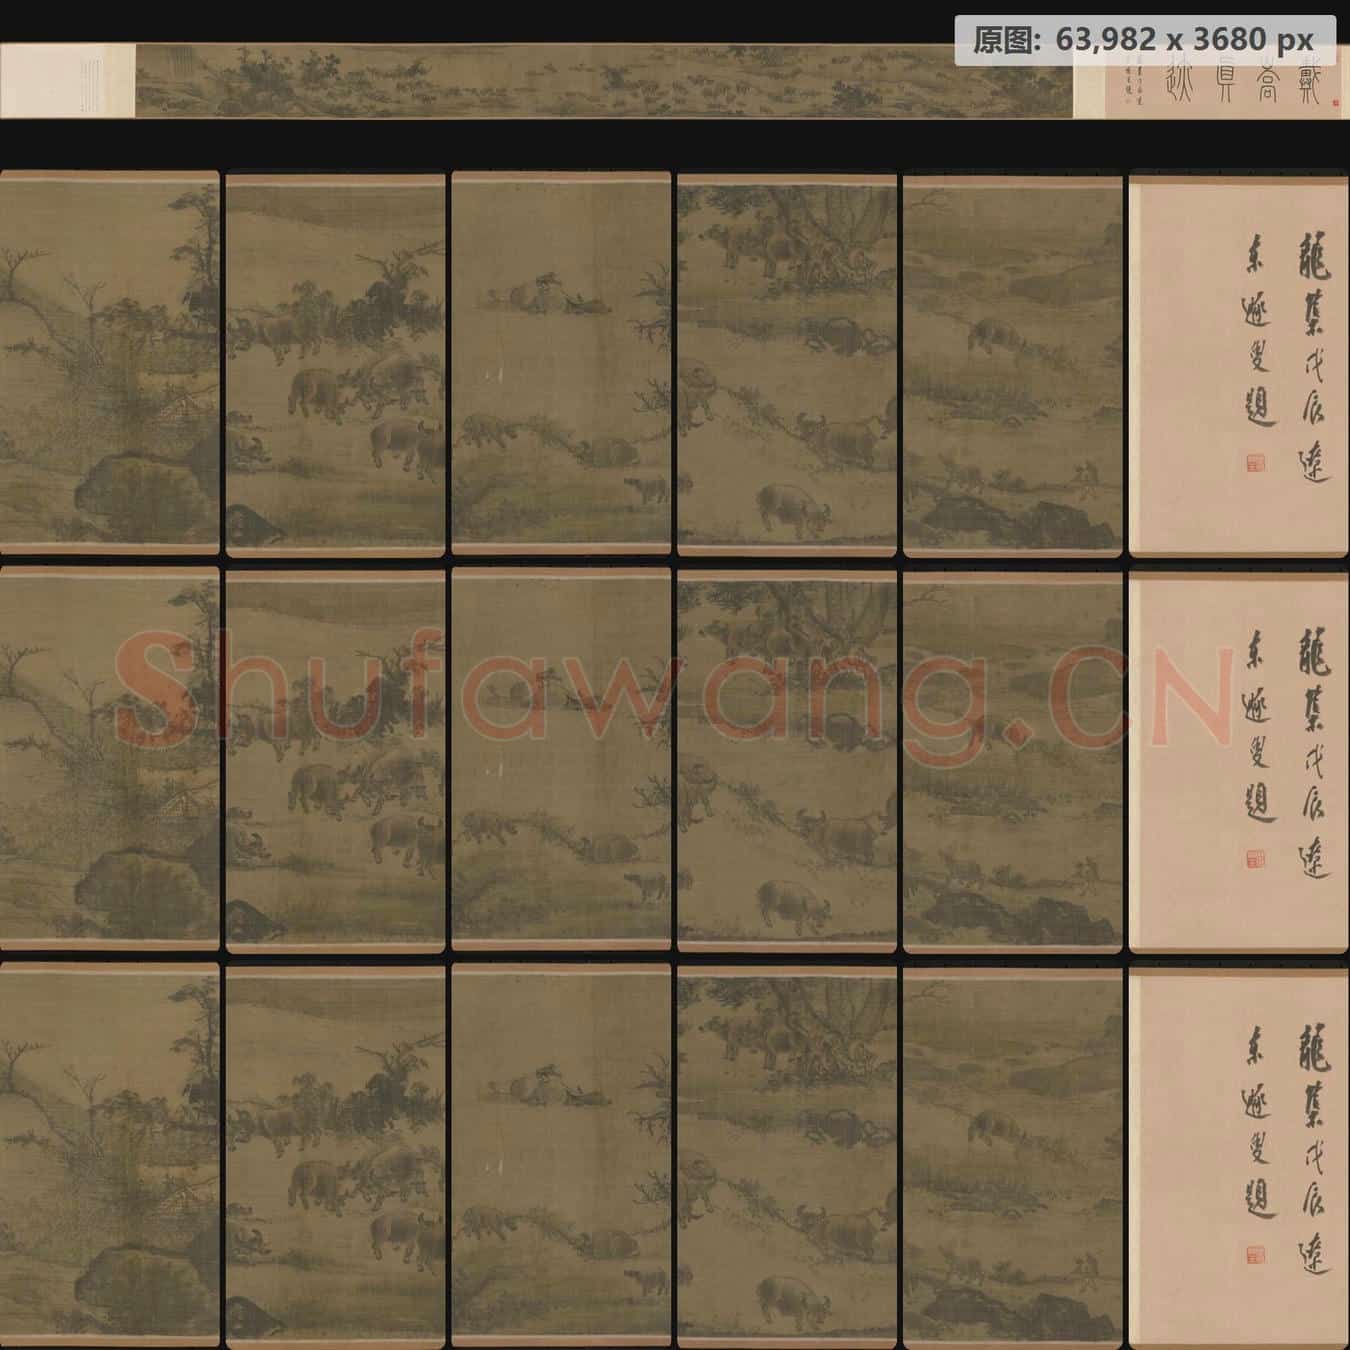 原图: 63,982 x 3680 px
戴嵩真迹
龍集戊辰遼
東遯叟題
Shufawang.CN
龍集戊辰遼
東遯叟題
龍集戊辰遼
東遯叟題